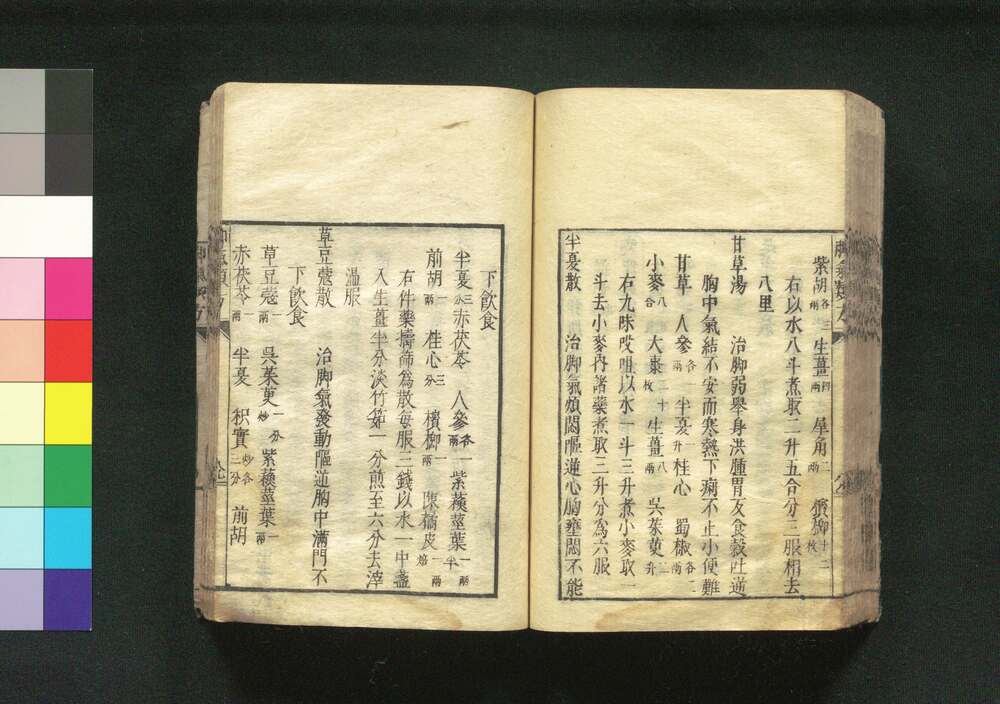 紫胡各三兩 生薑四兩 犀角二兩 檳榔十二枚
右以水八斗煮取二升五合分三服相去
八里
甘草湯 治脚弱舉身洪腫胃反食穀吐逆
胸中氣結不安而寒熱下痢不止小便難
甘草 人參各一兩 半夏一升 桂心 蜀椒各二兩
小麥八合 大棗二十枚 生薑八兩 吳茱萸二升
右九味㕮咀以水一斗三升煮小麥取一
斗去小麥內諸藥煮取三升分為六服
半夏散 治脚氣煩悶嘔逆心胸壅悶不能
下飲食
半夏三分 赤茯苓 人參各一兩 紫蘓莖葉一兩
前胡一兩 桂心三分 檳榔一兩 陳橘皮一兩焙
右件藥擣篩為散每服三錢以水一中盞
入生薑半分淡竹筎一分煎至六分去滓
温服
草豆蔻散 治脚氣發動嘔逆胸中滿悶不
下飲食
草豆蔻一兩 吳茱萸一分炒 紫蘓莖葉一兩
赤茯苓一兩 半夏 枳實炒各三分 前胡